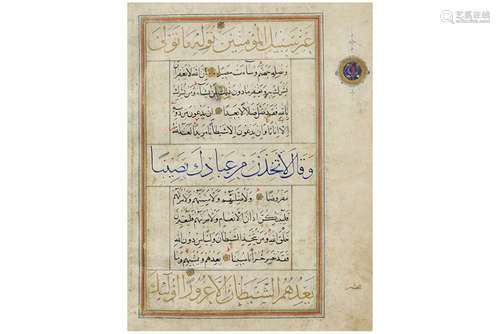 غير سبيل المؤمنين نوله ما تولى
ونصله جهنم وساءت مصيرا ان الله لا يغفر ان
يشرك به ويغفر ما دون ذلك لمن يشاء ومن يشرك
بالله فقد ضل ضلالا بعيدا ان يدعون من دونه
الا اناثا وان يدعون الا شيطانا مريدا لعنه الله
وقال لاتخذن من عبادك نصيبا
مفروضا ولاضلنهم ولامنينهم ولامرنهم
فليبتكن اذان الانعام ولامرنهم فليغيرن
خلق الله ومن يتخذ الشيطان وليا من دون الله
فقد خسر خسرانا مبينا يعدهم ويمنيهم وما
يعدهم الشيطان الا غرورا اولئك